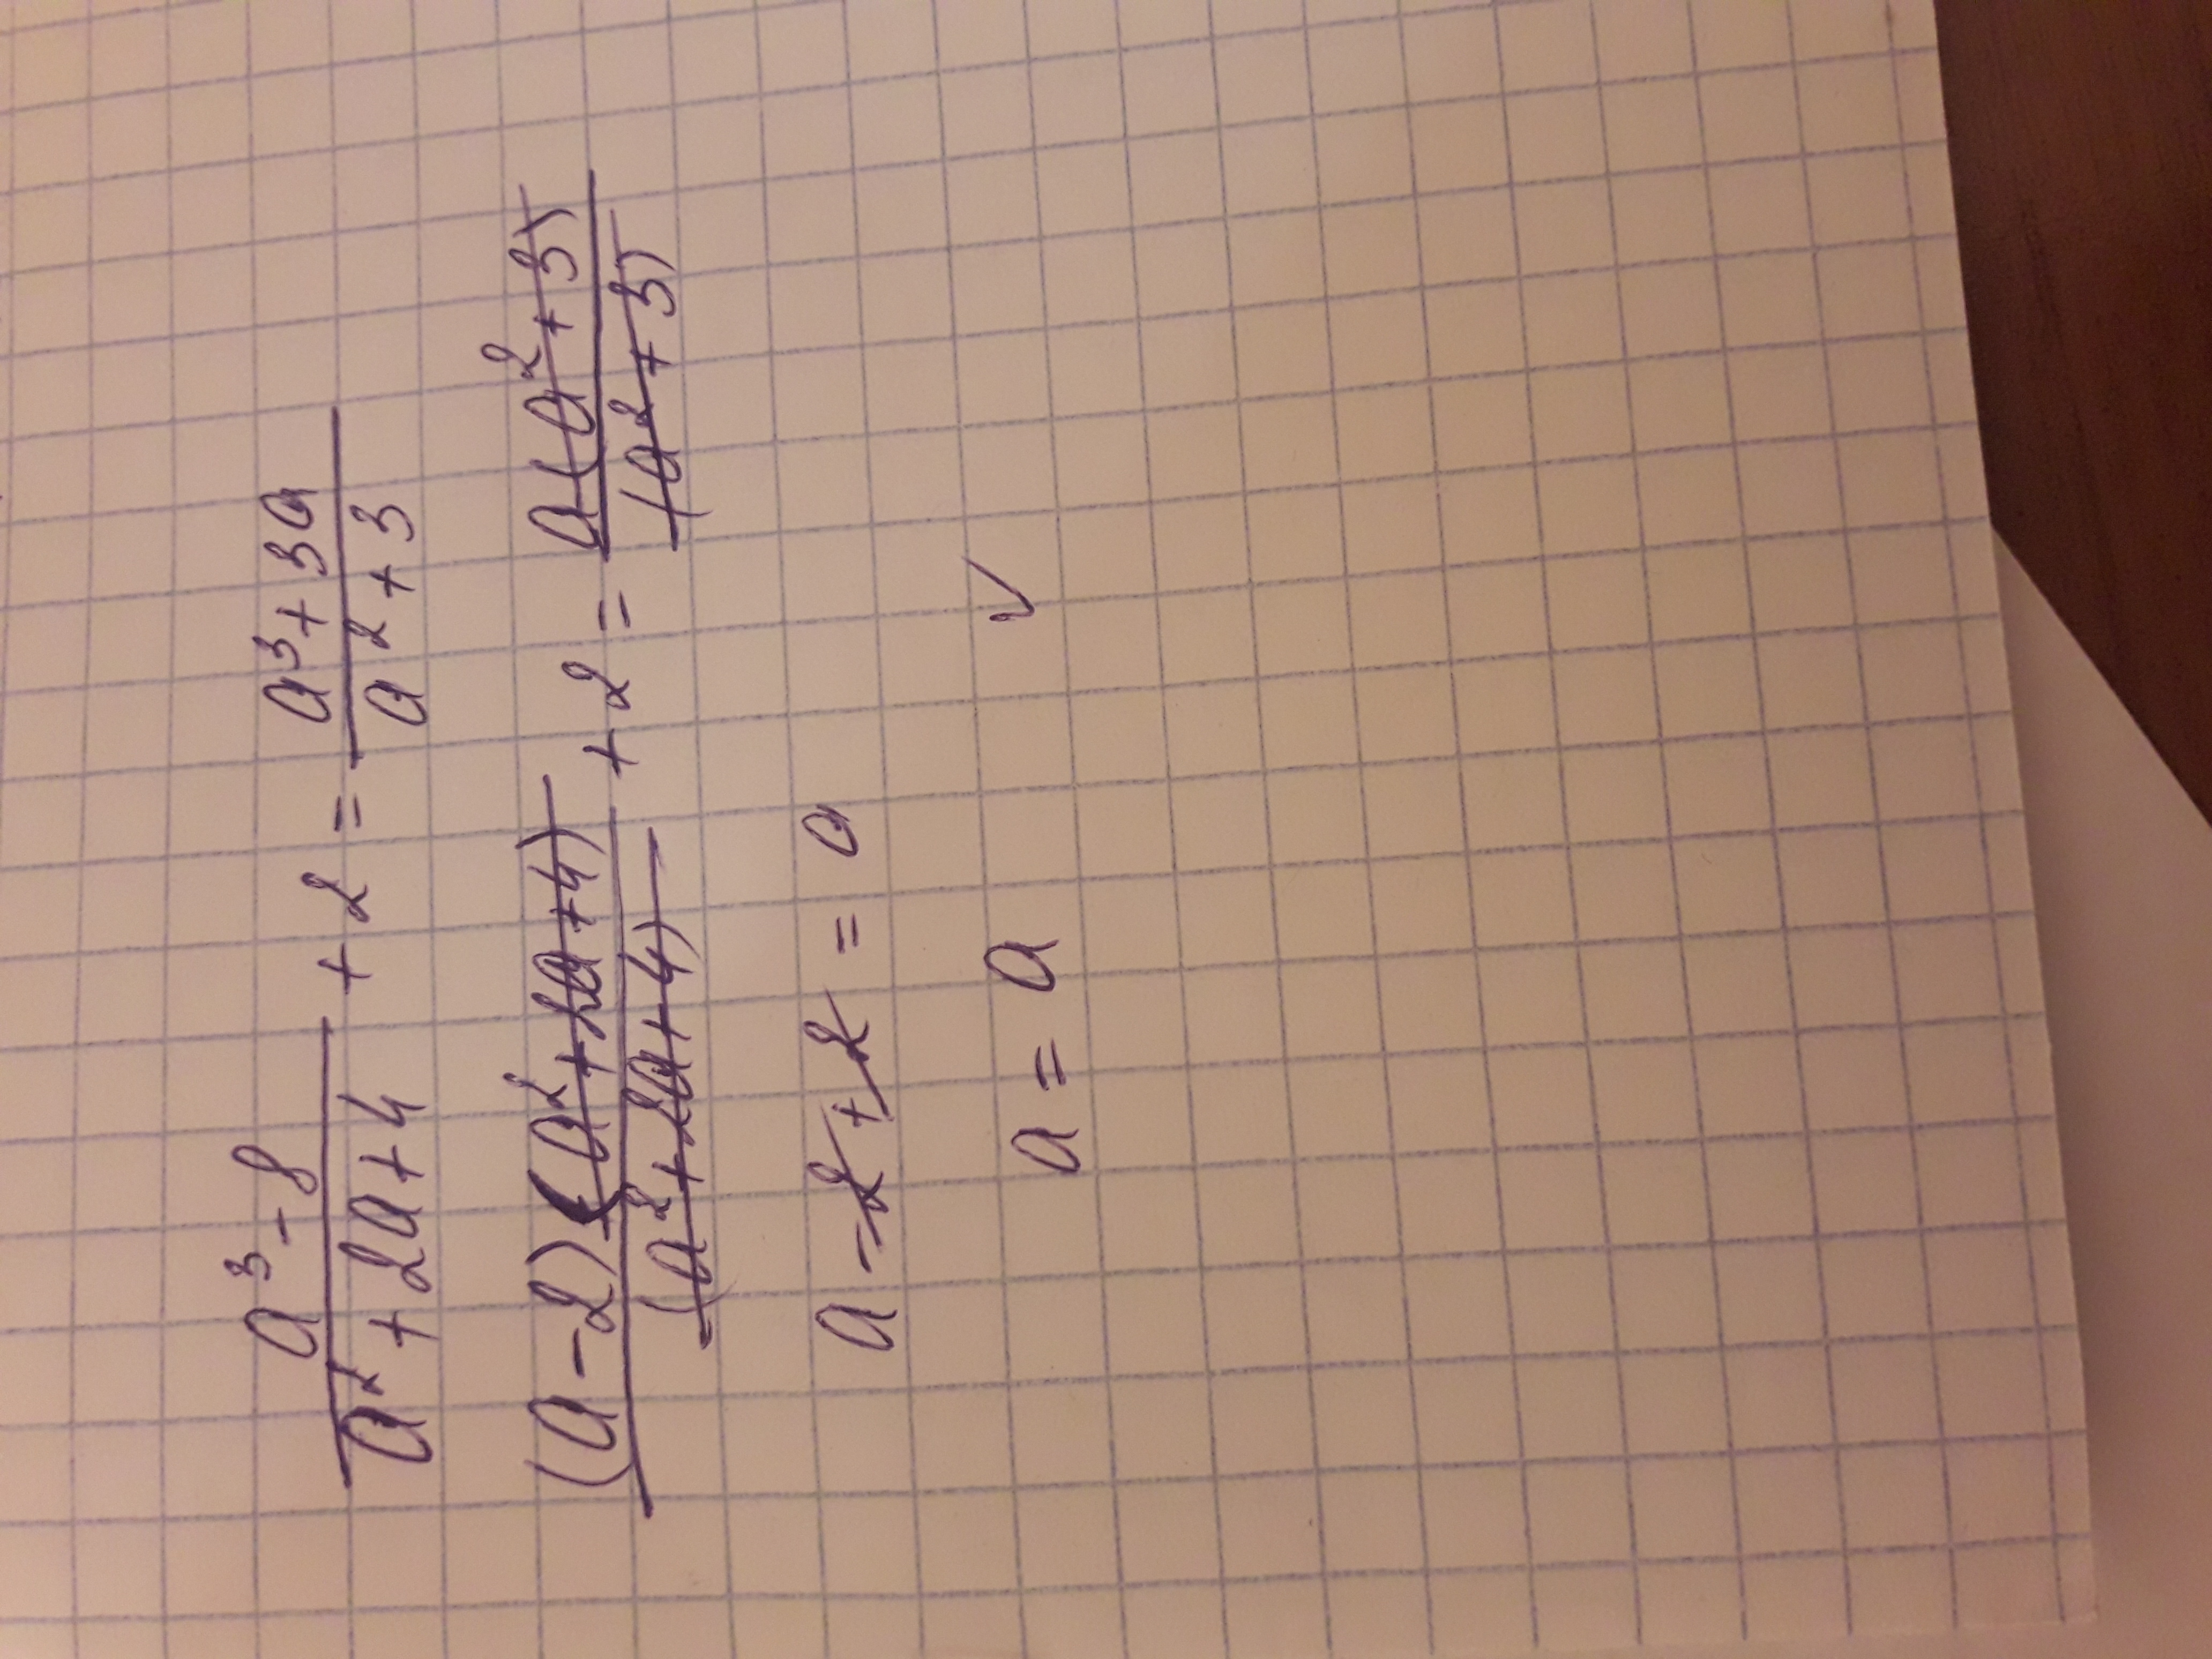 (a³-8)/(a²+2a+4) + 2 = (a³+3a)/(a²+3)
((a-2)(a²+2a+4))/((a²+2a+4)) + 2 = (a(a²+3))/((a²+3))
a-2+2 = a
a = a ✓